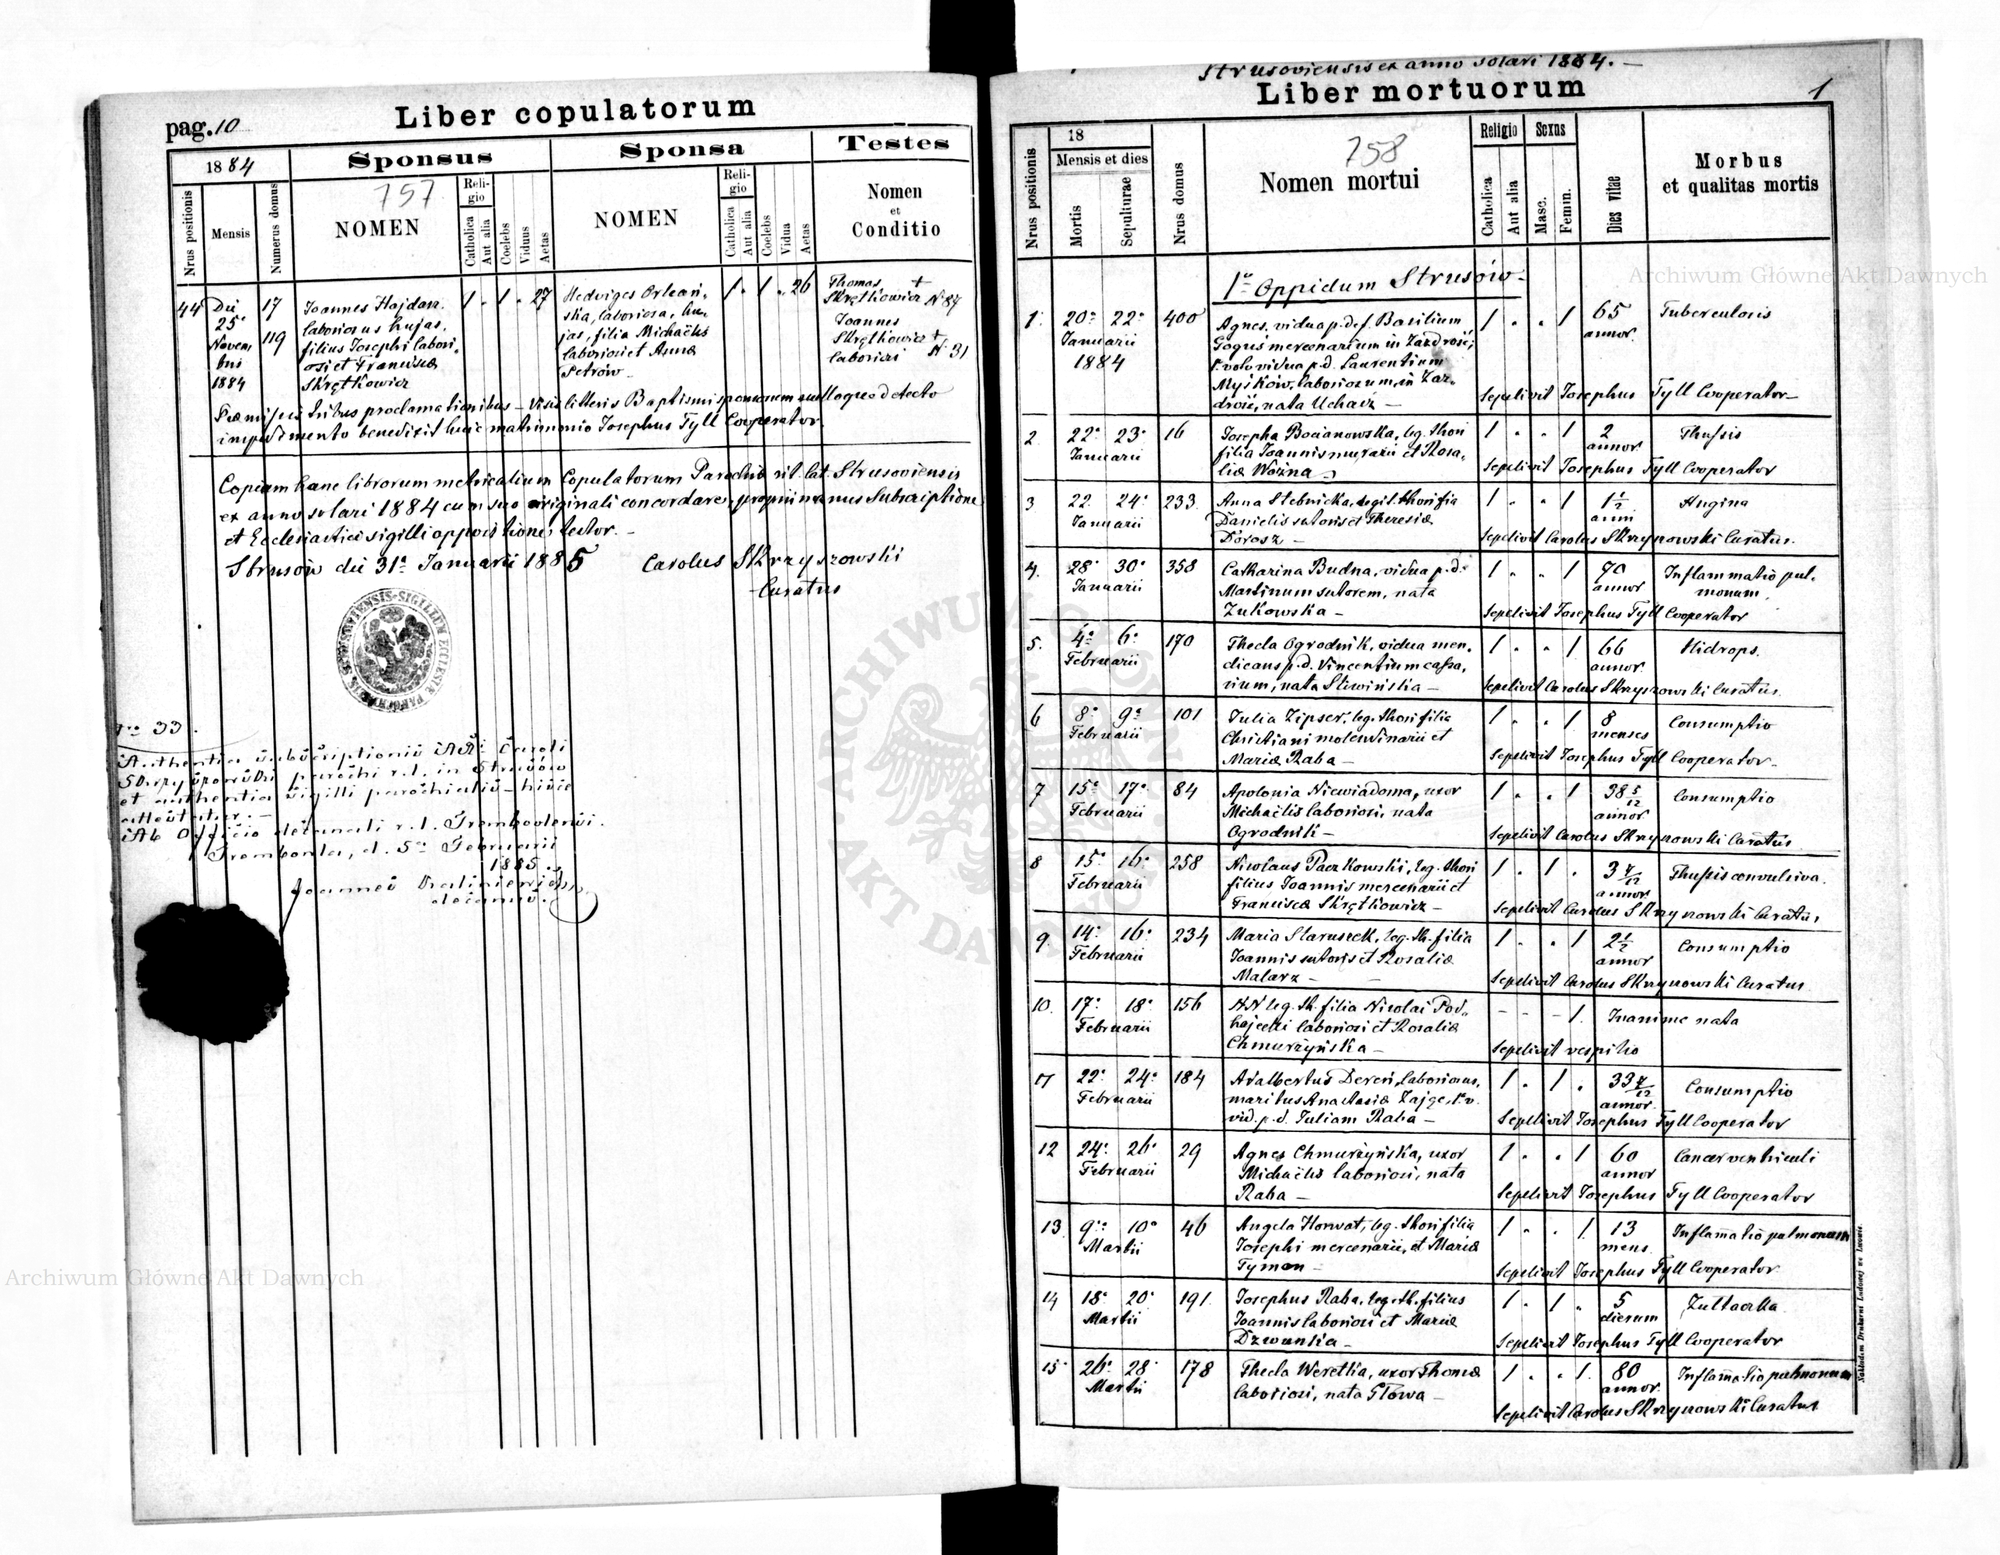 Liber copulatorum
pag. 10
1884
Sponsus
Sponsa
Testes
Nrus positionis
Mensis
Numerus domus
757
NOMEN
Religio
Catholica
Aut alia
Coelebs
Viduus
Aetas
NOMEN
Religio
Catholica
Aut alia
Coelebs
Vidua
Aetas
Nomen
et
Conditio
44 Die 17 Joannes Hajdasz 1 . 1 . 27 Hedviges Orlean, 1 . 1 . 26 Thomas +
25a 119 laboriosus hujas, ska, laboriosa, hu, Skrętkowicz N 84
Novem filius Josephi labori, jas, filia Michaëlis Joannes
bris osi et Franciscæ laboriosi et Annæ Skrętkowicz +
1884 Skrętkowicz Petrów laboriosi N. 31
Præmissis tribus proclamationibus – visis litteris Baptismi sponsorum nulloque detecto
impedimento benedixit huic matrimonio Josephus Tyll Cooperator.
Copiam hanc librorum metricalium Copulatorum Parochiæ rit. lat. Strusoviensis
ex anno solari 1884 cum suo originali concordare, propriæ manus Subscriptione
et Ecclesiastici sigilli appositione, testor. –
Strusów die 31a Januarii 1885 Carolus Skrzyszowski
Curatus
33.
Authentia subscriptionis Caroli
Skrzyszowski parochi r.l. in Strusów
et authentia sigilli parochialis – hisce
attestatur. –
Ab Officio decanali r.l. Trembovlensi.
Trembowla, d. 5a Februarii
1885.
Joannes
decanus.
Strusoviensis ex anno solari 1884. –
Liber mortuorum
1
Nrus positionis
18
Mensis et dies
Mortis
Sepulturae
Nrus domus
758
Nomen mortui
Religio
Catholica
Aut alia
Sexus
Masc.
Femin.
Dies vitae
Morbus
et qualitas mortis
1o Oppidum Strusów –
1. 20a 22a 400 Agnes, vidua p. def. Basilium 1 . . 1 65 Tuberculosis
Januarii Goguś mercenarium in Zazdrość, annor.
1884 1o volo vidua p.d. Laurentium
Myśków, laboriosum, in Zaz,
drość, nata Uchacz – Sepelivit Josephus Tyll Cooperator –
2. 22a 23a 16 Josepha Bocianowska, leg. thori 1 . . 1 2 Thussis
Januarii filia Joannis murarii et Rosa, annor.
liæ Woźna – Sepelivit Josephus Tyll Cooperator
3 22. 24a 233 Anna Stebnicka, legit. thori fia 1 . . 1 1 1/2 Angina
Januarii Danielis sutoris et Theresiæ anni
Dorosz – Sepelivit Carolus Skrzyszowski Curatus.
4. 28a 30a 358 Catharina Budna, vidua p.d. 1 . . 1 70 Inflammatio pul,
Januarii Martinum sutorem, nata annor monum.
Żukowska – Sepelivit Josephus Tyll Cooperator
5. 4a 6a 170 Thecla Ogrodnik, vidua men, 1 . . 1 66 Hidrops.
Februarii dicans p.d. Vincentium cassa, annor.
rium, nata Śliwińska – Sepelivit Carolus Skrzyszowski Curatus.
6 8a 9a 101 Julia Zipser, leg. thori filia 1 . . 1 8 Consumptio
Februarii Christiani molendinarii et menses
Mariæ Raba – Sepelivit Josephus Tyll Cooperator –
7 15a 17a 84 Apolonia Niewiadoma, uxor 1 . . 1 38 5/12 Consumptio
Februarii Michaëlis laboriosi, nata annor.
Ogrodnik – Sepelivit Carolus Skrzyszowski Curatus
8 15a 16a 258 Nicolaus Paczkowski, leg. thori 1 . 1 . 3 7/12 Thussis convulsiva.
Februarii filius Joannis mercenarii et annor.
Franciscæ Skrętkowicz – Sepelivit Carolus Skrzyszowski Curatus,
9. 14a 16a 234 Maria Staruszek, leg. th. filia 1 . . 1 2 1/2 Consumptio
Februarii Joannis sutoris et Rosaliæ annor
Malarz – Sepelivit Carolus Skrzyszowski Curatus
10. 17a 18a 156 NN leg. th filia Nicolai Pod, – – – 1. Inanime nata
Februarii hajecki laboriosi et Rosaliæ
Chmurzyńska – Sepelivit vespilio
11 22a 24a 184 Adalbertus Dereń, laboriosus, 1 . 1 . 33 7/12 Consumptio
Februarii maritus Anastasiæ Zając, 1o v. annor.
vid. p.d. Juliam Raba – Sepelivit Josephus Tyll Cooperator
12 24a 26a 29 Agnes Chmurzyńska, uxor 1 . . 1 60 Cancer ventriculi
Februarii Michaëlis laboriosi, nata annor
Raba – Sepelivit Josephus Tyll Cooperator
13. 9a 10a 46 Angela Horwat, leg. thori filia 1 . . 1. 13 Inflamatio pulmonum
Martii Josephi mercenarii, et Mariæ mens.
Tymon – Sepelivit Josephus Tyll Cooperator
14 18a 20a 191. Josephus Raba, leg. th. filius 1 . 1 . 5 Żułtaczka
Martii Joannis laboriosi et Mariæ dierum
Dzwonska – Sepelivit Josephus Tyll Cooperator
15 26a 28a 178 Thecla Weretka, uxor Thomæ 1 . . 1. 80 Inflamatio pulmonum
Martii laboriosi, nata Głowa – annor.
Sepelivit Carolus Skrzyszowski Curatus
Nakładem Drukarni Ludowej we Lwowie.
Archiwum Główne Akt Dawnych
Archiwum Główne Akt Dawnych
ARCHIWUM GŁÓWNE AKT DAWNYCH